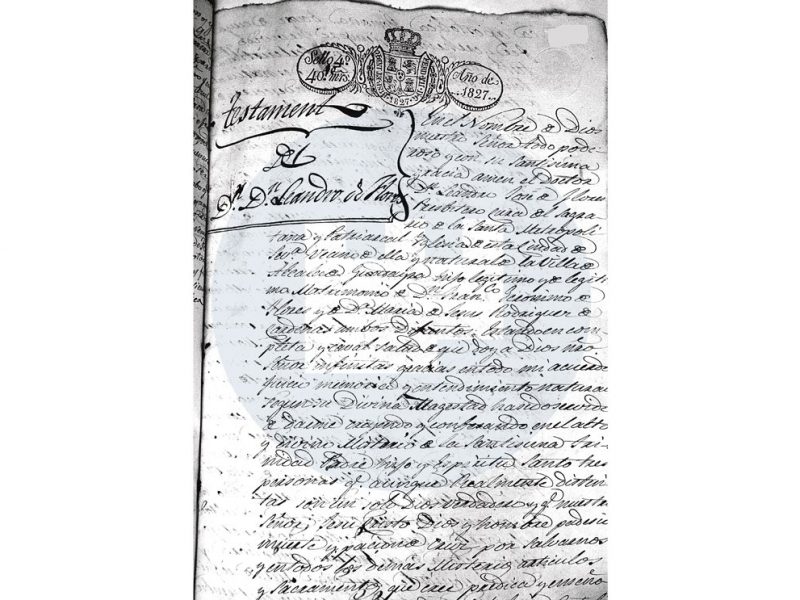 Sello 4º
40. mrs.
Año de
1827.
1827
Testament
Del
Dr. Dn. Leandro de Flores
En el Nombre de Dios
nuestro Señor todo pode-
roso y con su santisima
gracia amen el Doctor
Dn. Leandro José de Flores
Presbitero cura del Sagra-
rio de la Santa Metropoli
tana y Patriarcal Yglesia de esta Ciudad de
Sevª. Vecino de ella y natural de la Villa de
Alcala de Guadaira hijo legitimo y de legiti
mo Matrimonio de Dn. Franco. Geronimo de
Flores y de Dª. Maria de Jesus Rodriguez de
ambos Difuntos: estando en com-
pleta y cabal salud de que doy a Dios Nro.
Señor infinitas gracias en todo mi acuerdo
juicio memoria y entendimiento natural
su Divina Magestad
creyendo y confesando en el alto
y divino Misterio de la Santisima Tri-
nidad Padre hijo y Espiritu Santo tres
personas qe. aunque Realmente distin-
tas son un solo Dios verdadero y qe. nuestro
Señor Jesucristo Dios y hombre padecio
muerte y pacion de Cruz por salvarnos
y en todos los demas Misterios articulos
y Sacramentos que cree predica y enseña